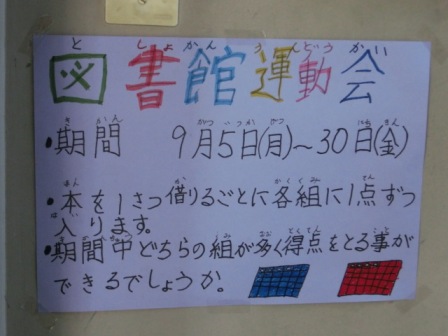 図書館運動会
としょかんうんどうかい
・期間 9月5日(月)～30日(金)
・本を1さつ借りるごとに各組に1点ずつ
入ります。
・期間中どちらの組が多く得点をとる事が
できるでしょうか。